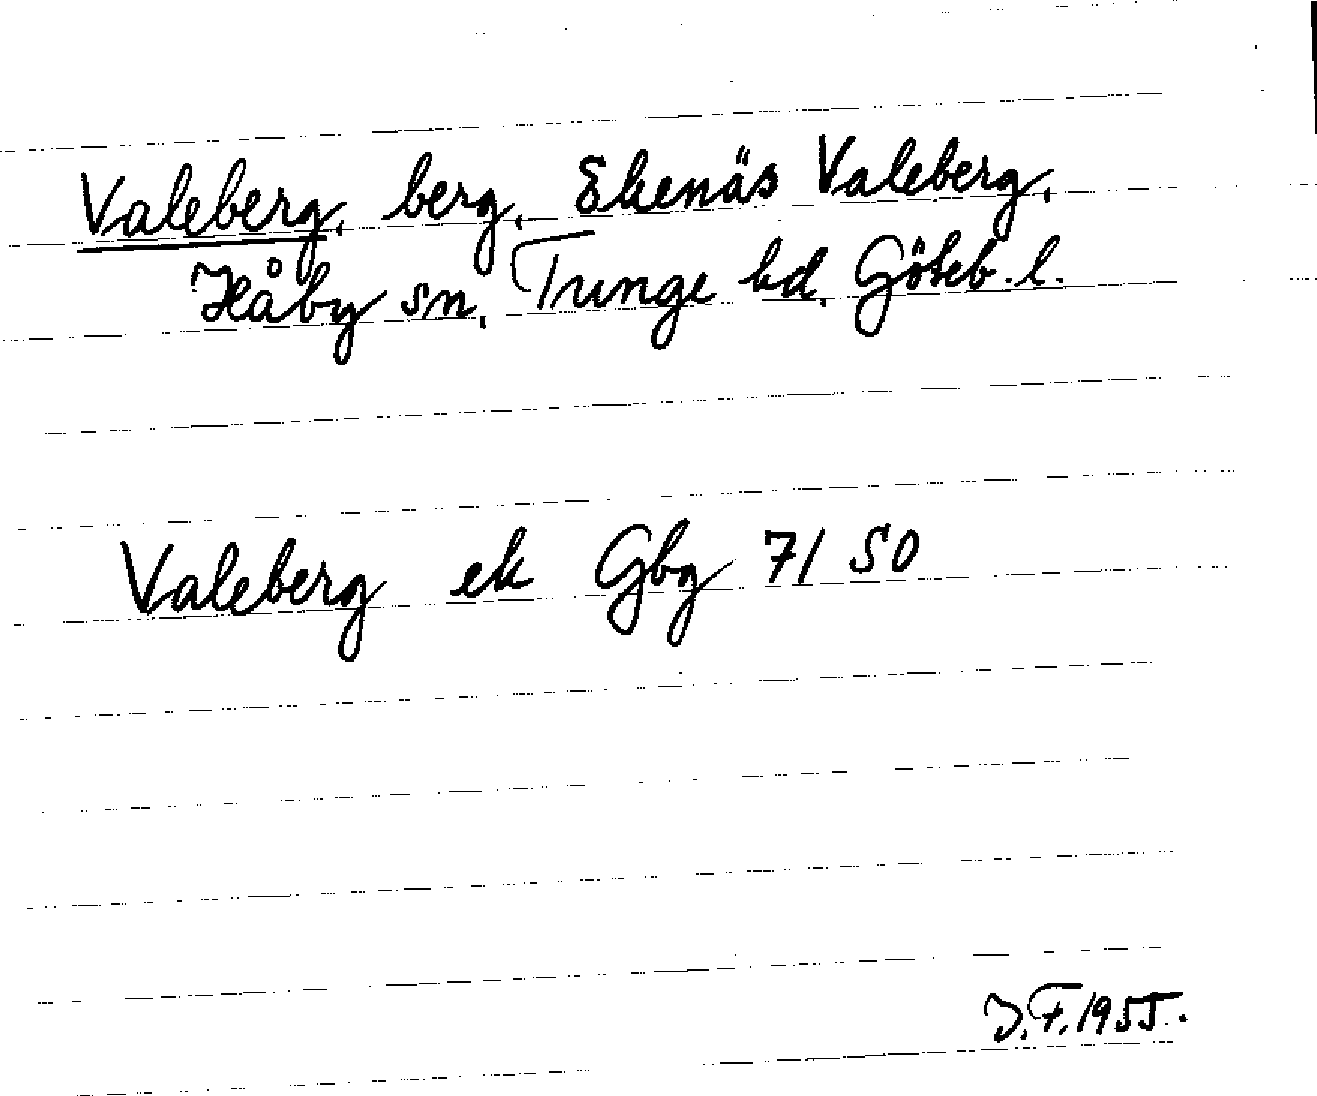 Valeberg, berg, Ekenäs Valeberg,
Håby sn, Tunge hd, Göteb. l.
Valeberg ek Gbg 71 50
J.F. 1955.